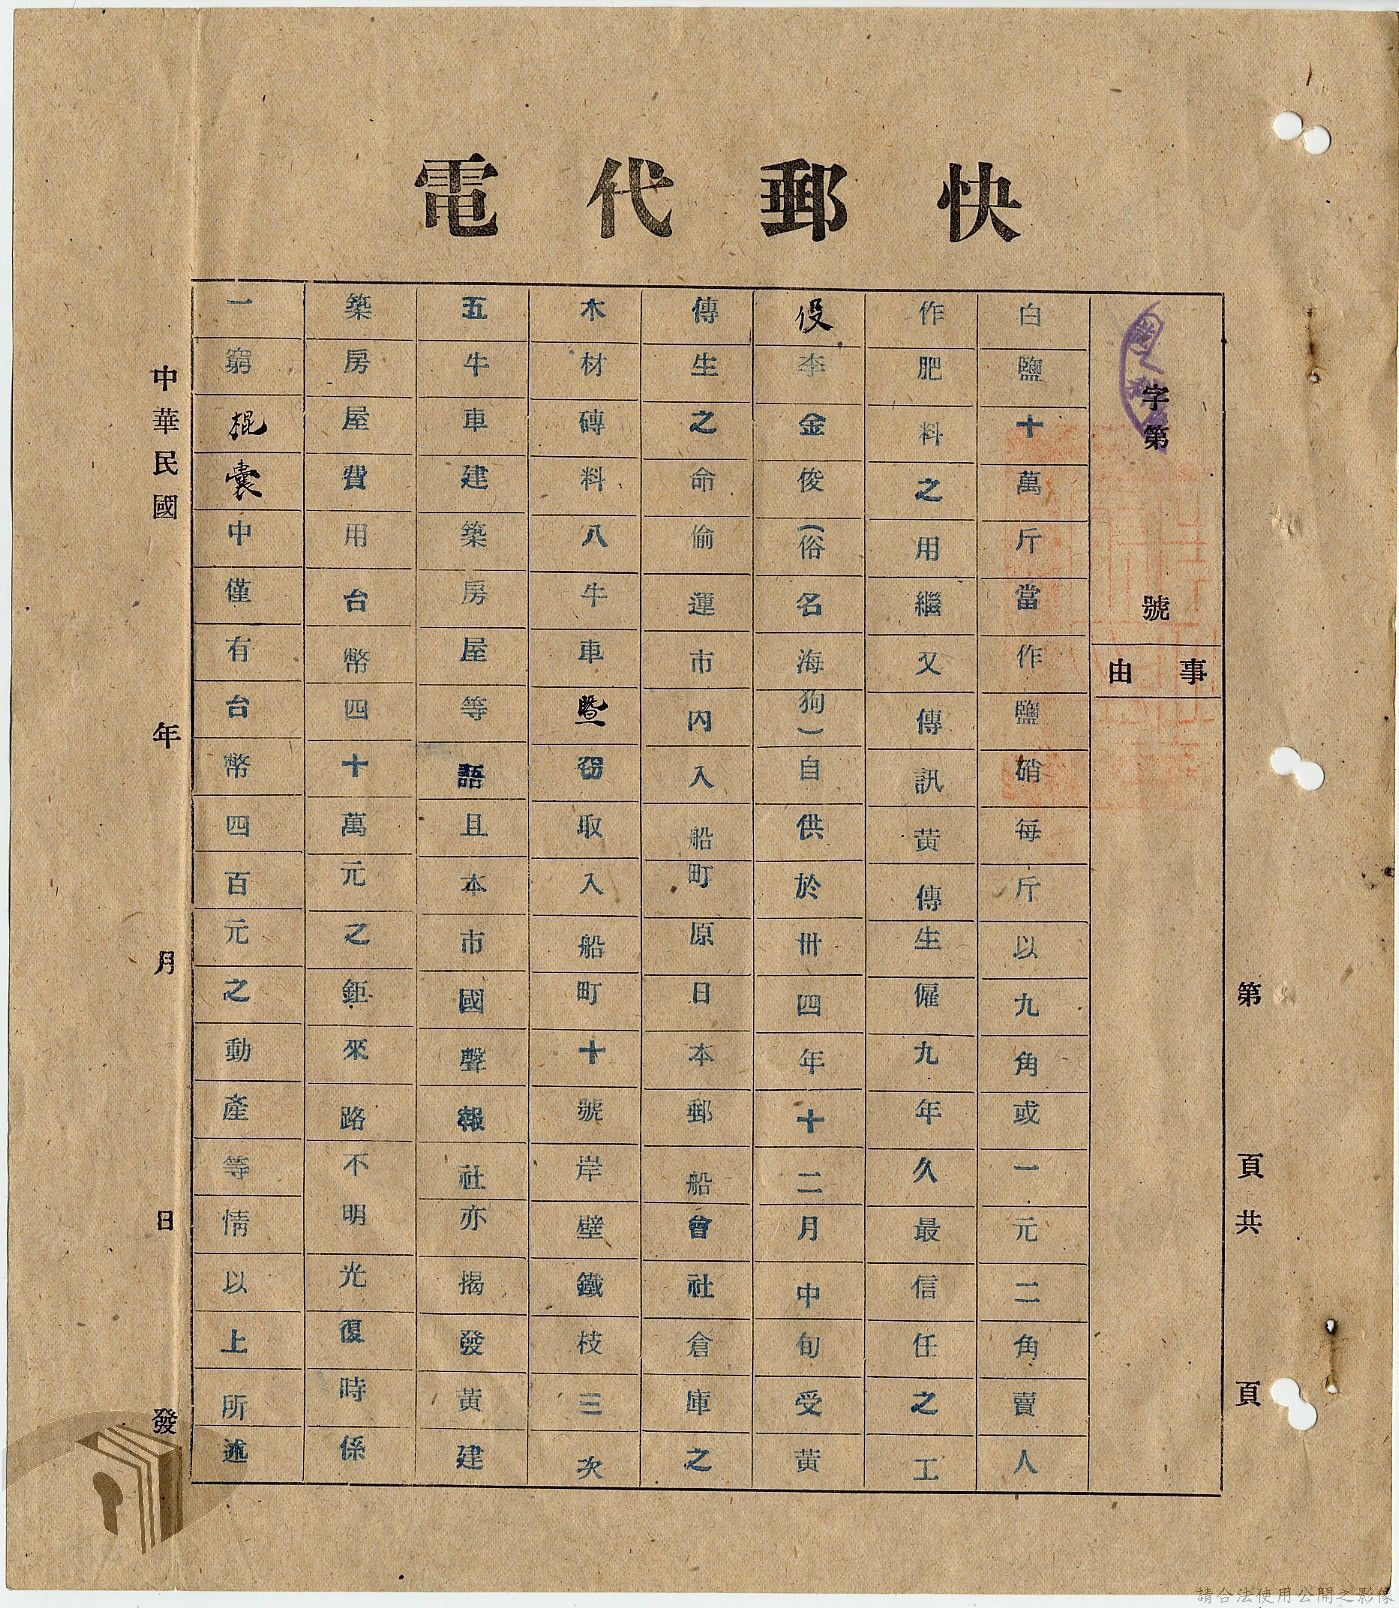 快郵代電
字第 號
事由
白鹽十萬斤當作鹽硝每斤以九角或一元二角賣人
作肥料之用繼又傳訊黃傳生僱九年久最信任之工
役李金俊(俗名海狗)自供於卅四年十二月中旬受黃
傳生之命偷運市內入船町原日本郵船會社倉庫之
木材磚料八牛車暨窃取入船町十號岸壁鐵枝三次
五牛車建築房屋等語且本市國聲報社亦揭發黃建
築房屋費用台幣四十萬元之鉅來路不明光復時係
一窮棍囊中僅有台幣四百元之動產等情以上所述
中華民國 年 月 日 發
第 頁共 頁
請合法使用公開之影像